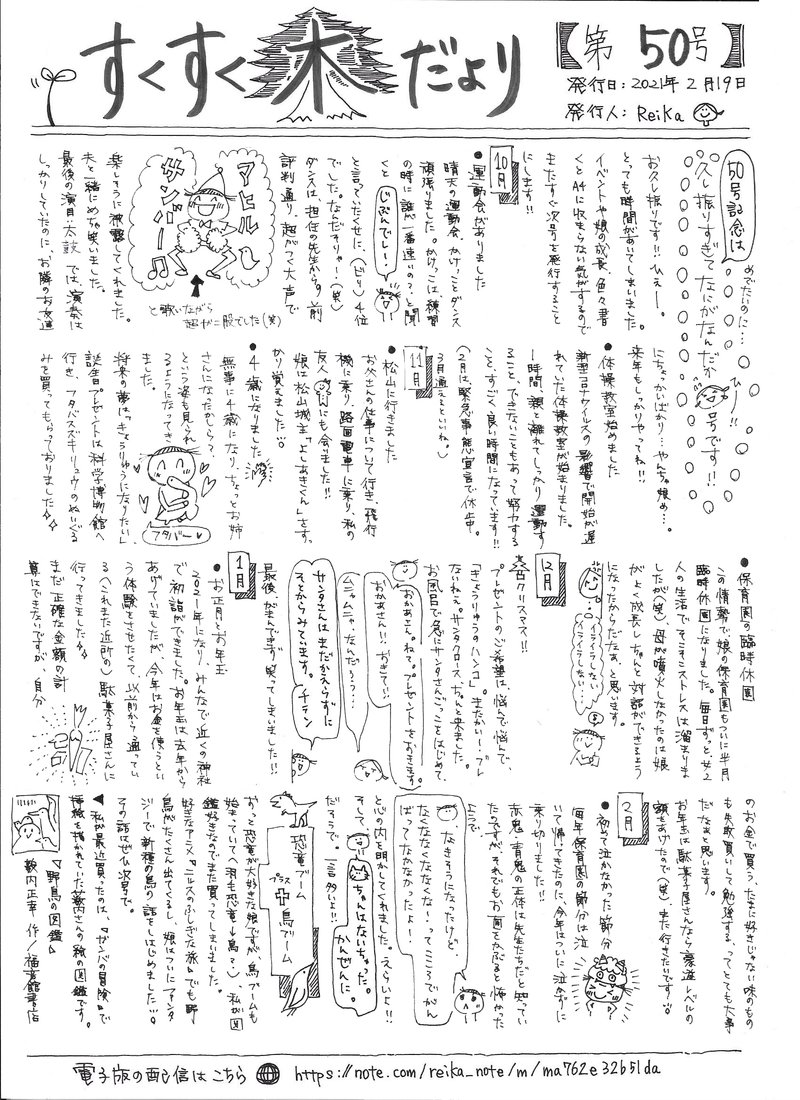 すくすく木だより
【第50号】
発行日：2021年2月19日
発行人：Reika
50号記念は
めでたいのに…
久し振りすぎてなにがなんだか
ひー!!
号です!!
お久し振りです!!ひぇー。
とっても時間があいてしまいました。
イベントや娘の成長、色々書
くとA4に収まらない気がするので
またすぐ次号を発行すること
にします!!
10月
●運動会がありました
晴天の運動会 かけっことダンス
頑張りました。かけっこは、練習
の時に「誰が一番速いの?」と聞
くと
じぶんでしー!
と言っていたくせに、(ビリ)4位
でした。なんだそりゃー!(笑)
ダンスは、担任の先生から の前
評判通り、超がつく大声で
マヒル
サンバー♫
と歌いながら
超がに股でした(笑)
楽しそうに披露してくれました。
夫と一緒にめちゃ笑いました。
最後の演目・太鼓では、演奏は
しっかりしていたのに、お隣のお友達
にちょっかいばっかり…やんちゃ娘め…。
来年もしっかりやってね!!!
●体操教室始めました
新型コロナウイルスの影響で開始が遅
れていた体操教室が始まりました。
1時間、親と離れてしっかり運動す
ること、できないこともあって努力する
こと、すごく良い時間になっています!!
(2月は緊急事態宣言で休止中。
3月通えるといいね。)
11月
●松山に行きました
お父さんの仕事について行き、飛行
機に乗り、路面電車に乗り、私の
友人 にも会いました!!
娘は松山城主「よしあきくん」をす。
かり覚えました…。
●4歳になりました
無事に4歳になり、ちょっとお姉
さんになったからら?、
という姿も見られ
るようになってき
ました。
フタバー♥
将来の夢は「きょうりゅうになりたい」
誕生日プレゼントは科学博物館へ
行き、フタバスズキリュウのぬいぐる
みを買ってもらっておりました
●保育園の臨時休園
この情勢で娘の保育園もついに半月
臨時休園になりました。毎日ずっと#2
人の生活でそこそこストレスは溜まりま
したが(笑)母が噴火しなかったのは娘
がよく成長し、ちゃんと対話ができるよう
になったからだなぁ、と思います。
イライラしない…
イライラしない…
12月
クリスマス!!
プレゼントのご希望は、悩んで悩んで、
「きょうりゅうのハンコ」。まだない…!プレ
ないねぇ。サンタクロースちゃんと来ました。
お風呂で急にサンタさんごっこをはじめて
おかあさん。ねて。プレゼントをおきます。
おかあさん!!おきて!!
ムニャムニャ、なんだろう…
サンタさんはまだかえらずに
そとからみています。チラッ
最後、がまんできず笑ってしまいました!!
1月
●お正月とお年玉
2021年になり、みんなで近くの神社
で初詣ができました。お年玉は去年から
あげていましたが、今年はお金を使うとい
う体験をさせたくて、以前から通ってい
る(これまた近所の)駄菓子屋さんに
行ってきました
まだ正確な金額の計
算はできないですが、自分
のお金で買う、たまに好きじゃない味のもの
も失敗買いして勉強する、ってとても大事
だなぁと思います。
お年玉は駄菓子屋さんなら豪遊レベルの
額をあげたので(笑)また行きたいです!
2月
●初めて泣かなかった節分
毎年保育園の節分は泣
いて帰ってきたのに、今年はついに泣かずに
乗り切りました!!
赤鬼・青鬼の正体は先生たちだと知ってい
たのですが、それでもお面をかぶると怖かった
ようで
なきそうになったけど、
なくなくなくな!ってこころでがん
ばってなかなかったよ!
と心の内を明かしてくれました。えらいよ!!
そして
ちゃんはないちゃった。
かんぜんに。
だそうで。一言多いよ!!
恐竜ブーム
プラス
➕鳥ブーム
おっと恐竜が大好きな娘ですが、鳥ブームも
始まっていて(羽毛恐竜→鳥?)、私が図
鑑好きなのでまた買ってしまいました。
好きなアニメ『ニルスのふしぎな旅』でも野
鳥がたくさん出てくるし、娘はついにファンタ
ジーで新種の鳥の話をはじめました!!
その話はぜひ次号で。
◀私が最近買ったのは、『ガンバの冒険』で
挿絵を描かれていた薮内さんの絵の図鑑です。
『野鳥の図鑑』
薮内正幸 作/福音館書店
電子版の配信はこちら https://note.com/reika_note/m/ma762e32b51da